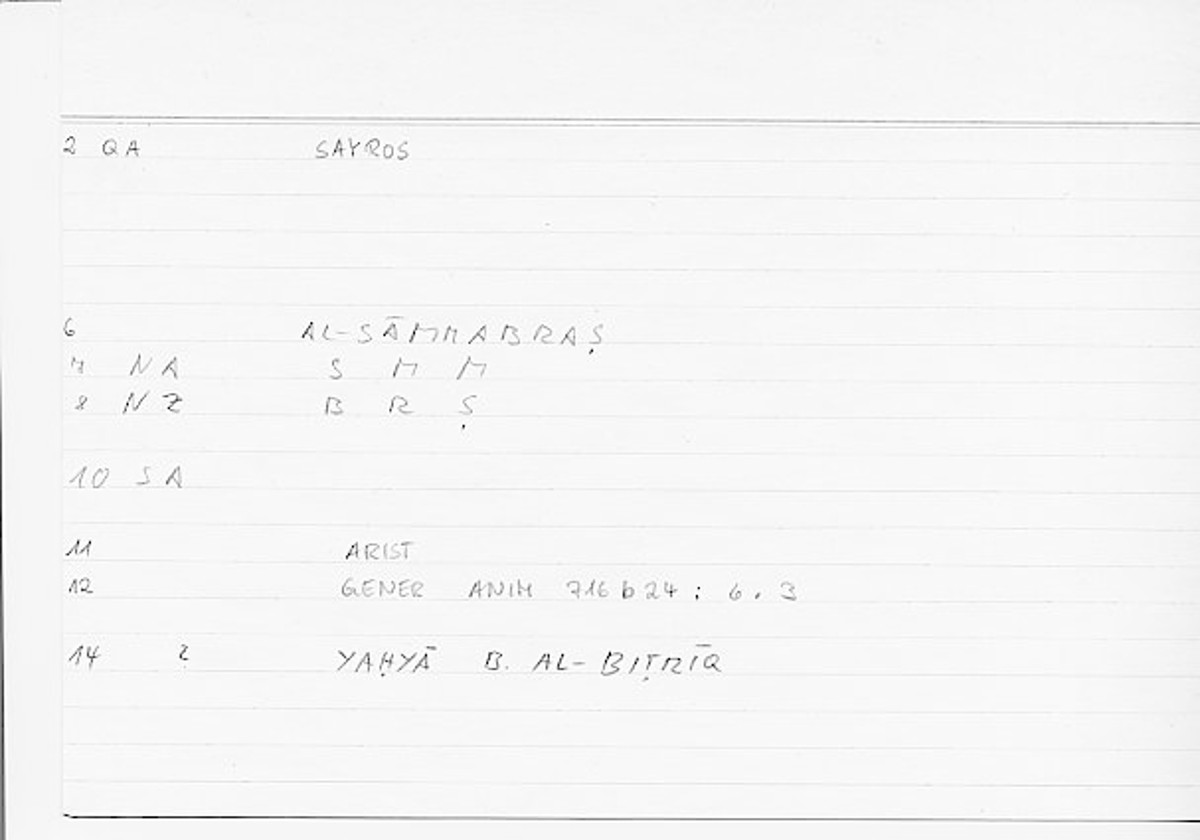 2 QA SAYROS
6 AL-SĀMMABRAṢ
7 NA S M M
8 NZ B R Ṣ
10 SA
11 ARIST
12 GENER ANIM 716 b 24 : 6 . 3
14 ? YAḤYĀ B. AL-BIṬRĪQ